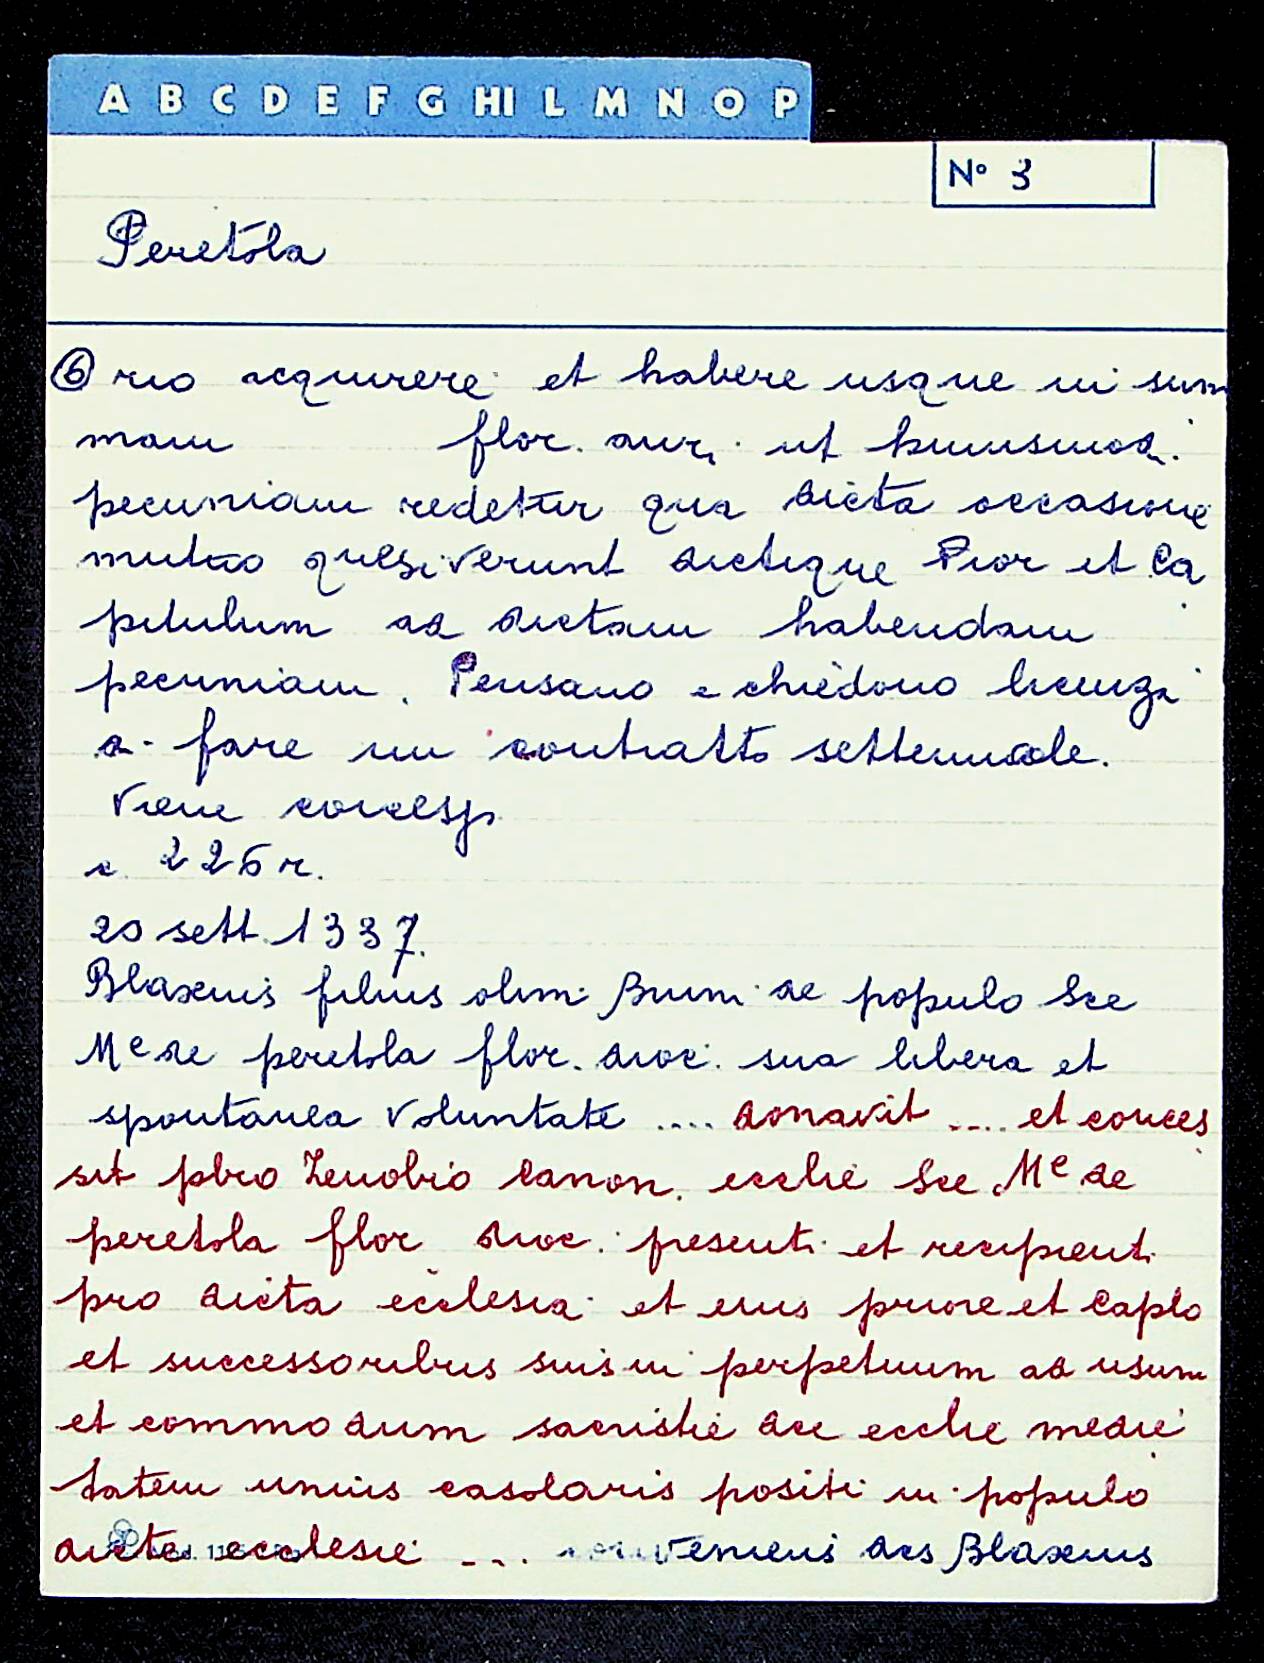 A B C D E F G HI L M N O P
N° 3
Peretola
⑥ rio acquirere et habere usque in sum
mam flor. aur. ut huiusmod.
pecuniam redetur qua dicta occasione
mutuo quesiverunt dictique Prior et Ca
pitulum ad dictam habendam
pecuniam. Pensano e chiedono licenza
a fare un contratto settennale.
Viene concesso
c. 226 r.
20 sett. 1337.
Blaxius filius olim Bruni de populo Sce
Me de peretola flor. dioc. sua libera et
spontanea voluntate .... donavit .... et conces
sit pbro Zenobio canon. ecclie Sce Me de
peretola flor dioc. presenti et recipient.
pro dicta ecclesia et eius priore et Caplo
et successoribus suis in perpetuum ad usum
et commodum sacristie dce ecclie medie
tatem unius casolaris positi in populo
dicte ecclesie .... conveniens dcs Blaxius